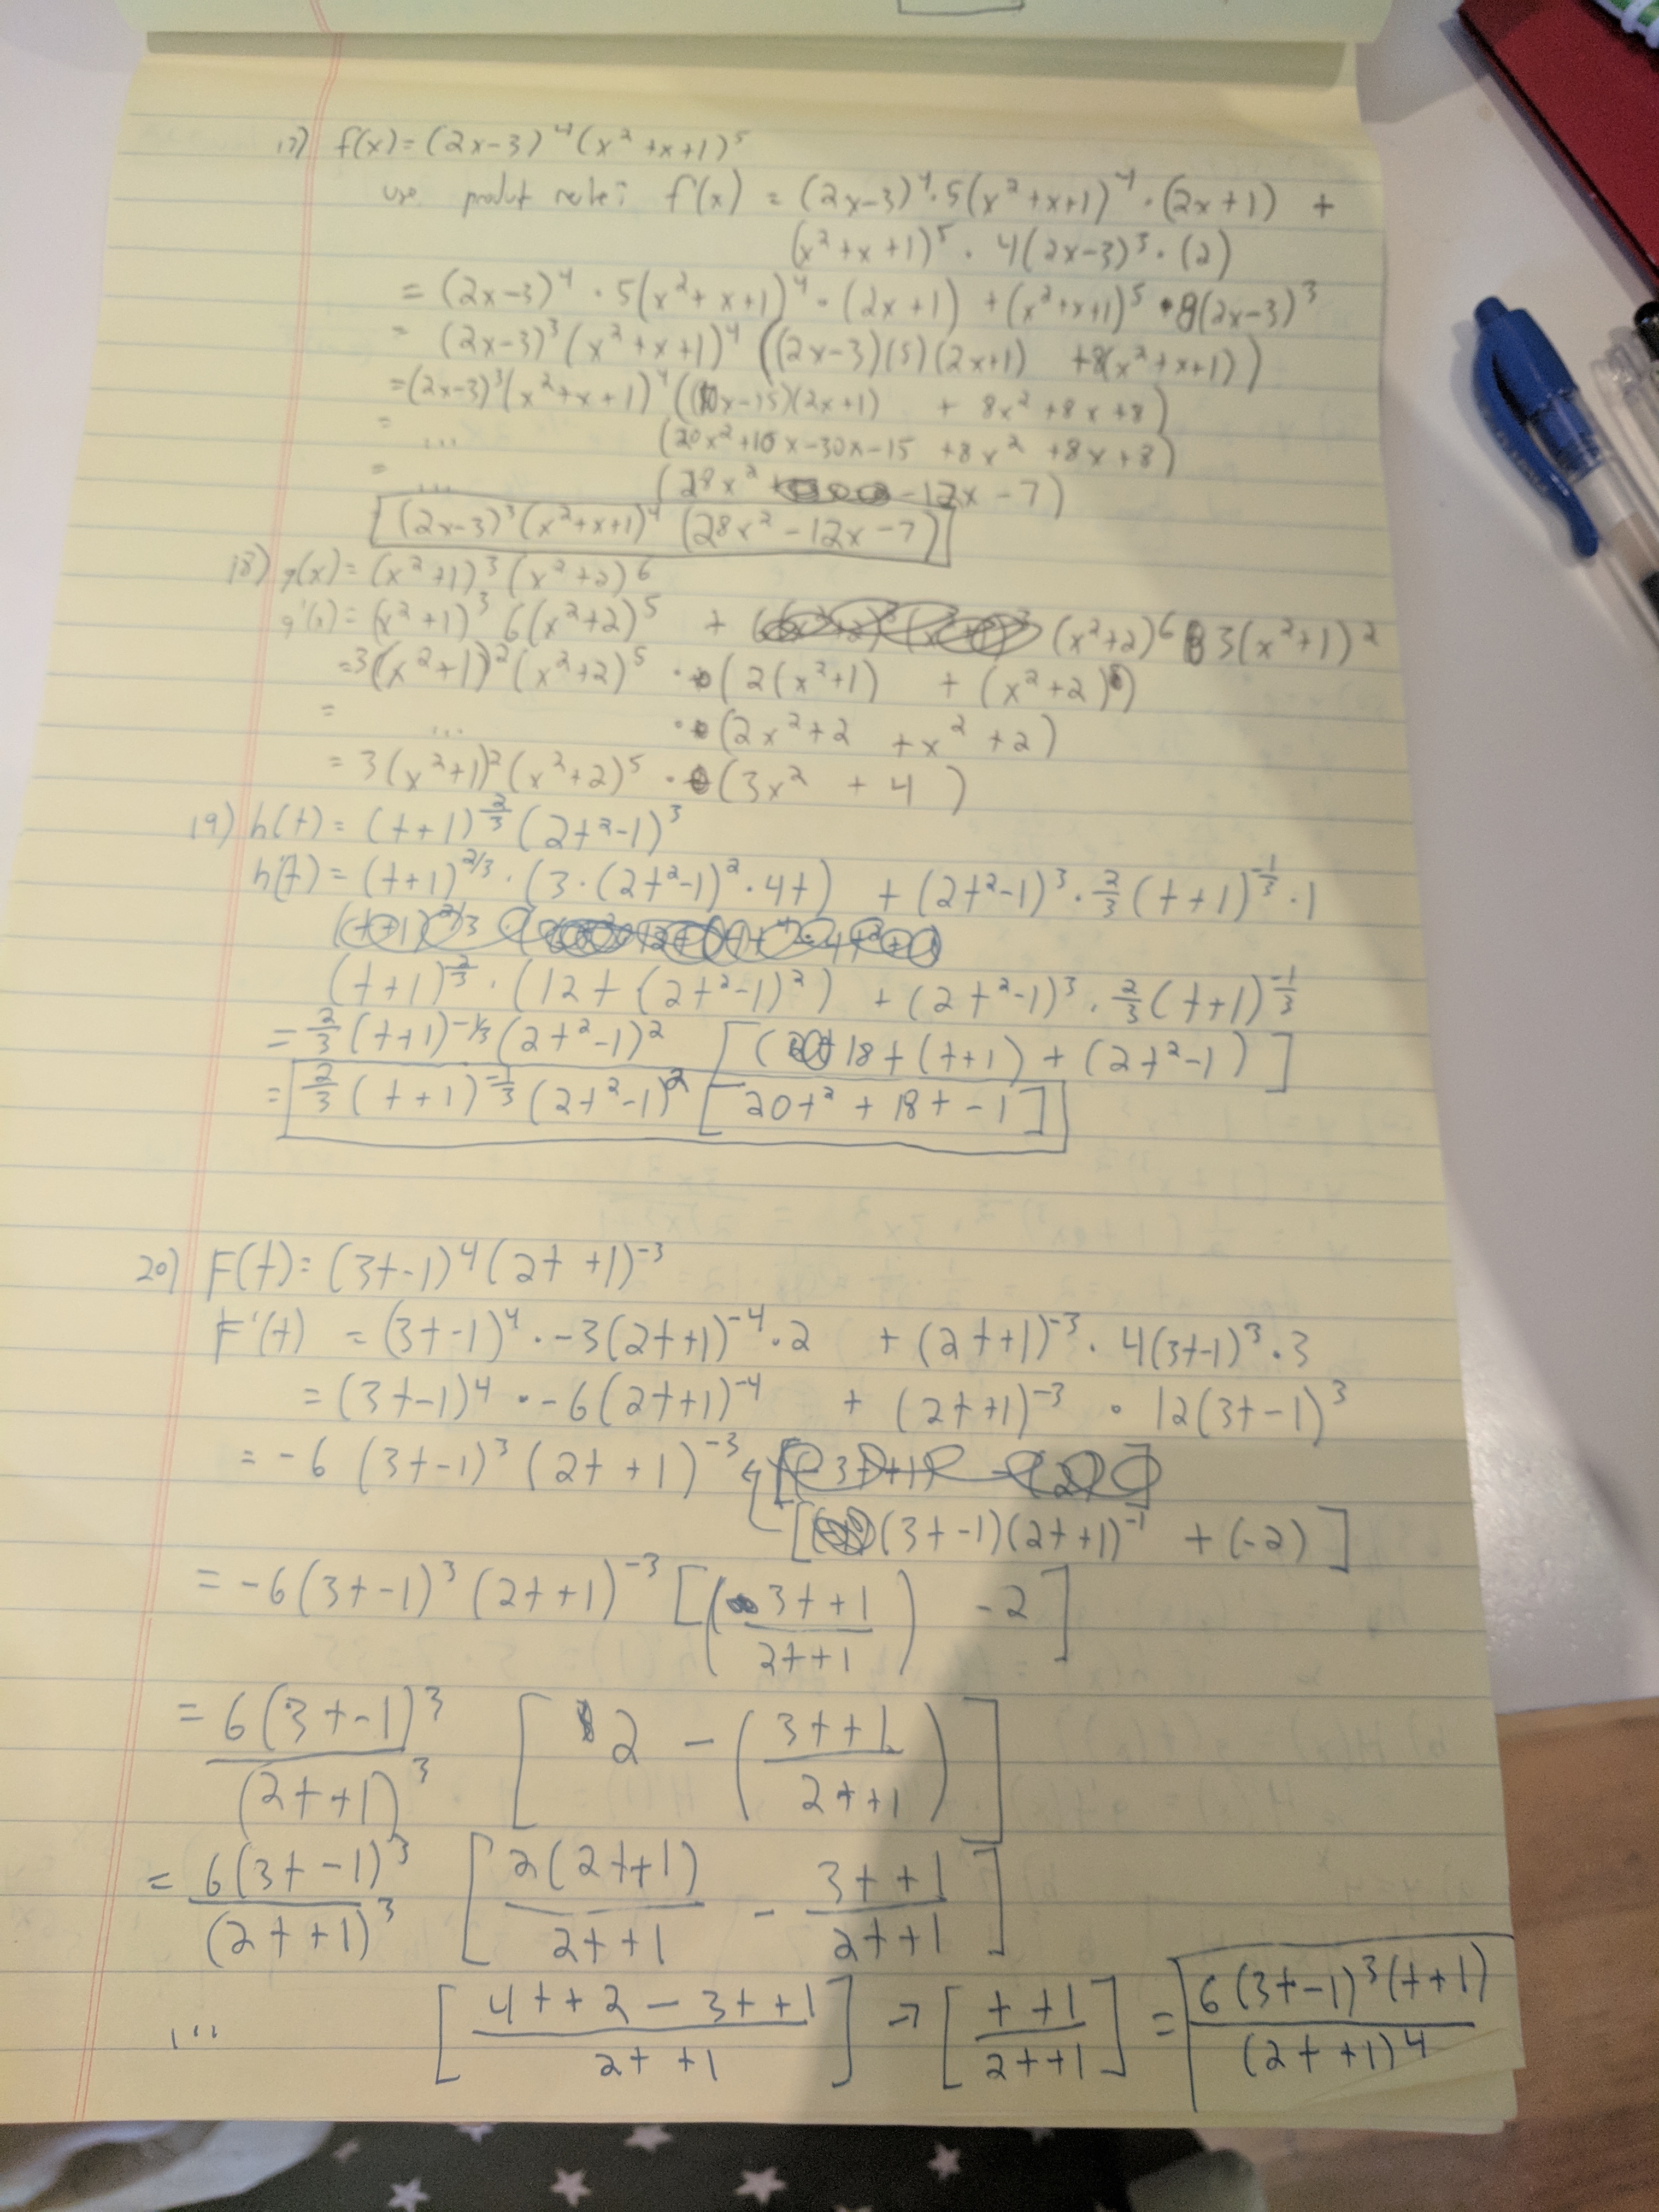 17) f(x) = (2x-3)⁴(x²+x+1)⁵
use product rule: f'(x) = (2x-3)⁴·5(x²+x+1)⁴·(2x+1) +
(x²+x+1)⁵ · 4(2x-3)³·(2)
= (2x-3)⁴ · 5(x²+x+1)⁴·(2x+1) + (x²+x+1)⁵ · 8(2x-3)³
= (2x-3)³(x²+x+1)⁴ ((2x-3)(5)(2x+1) + 8(x²+x+1))
= (2x-3)³(x²+x+1)⁴ ((10x-15)(2x+1) + 8x²+8x+8)
= ... (20x²+10x-30x-15 +8x²+8x+8)
= ... (28x² -12x -7)
(2x-3)³(x²+x+1)⁴ (28x²-12x-7)
18) g(x) = (x²+1)³(x²+2)⁶
g'(x) = (x²+1)³ 6(x²+2)⁵ + (x²+2)⁶ 3(x²+1)²
= 3(x²+1)²(x²+2)⁵ · (2(x²+1) + (x²+2))
= ... · (2x²+2 +x²+2)
= 3(x²+1)²(x²+2)⁵ · (3x² + 4)
19) h(t) = (t+1)^(2/3) (2t²-1)³
h'(t) = (t+1)^(2/3) · (3·(2t²-1)²·4t) + (2t²-1)³ · 2/3 (t+1)^(-1/3) · 1
(t+1)^(2/3) · (12t (2t²-1)²) + (2t²-1)³ · 2/3 (t+1)^(-1/3)
= 2/3 (t+1)^(-1/3) (2t²-1)² [(18t(t+1) + (2t²-1)]
= 2/3 (t+1)^(-1/3) (2t²-1)² [20t² + 18t - 1]
20) F(t) = (3t-1)⁴(2t+1)⁻³
F'(t) = (3t-1)⁴ · -3(2t+1)⁻⁴ · 2 + (2t+1)⁻³ · 4(3t-1)³ · 3
= (3t-1)⁴ · -6(2t+1)⁻⁴ + (2t+1)⁻³ · 12(3t-1)³
= -6 (3t-1)³ (2t+1)⁻³
[(3t-1)(2t+1)⁻¹ + (-2)]
= -6(3t-1)³(2t+1)⁻³ [((3t+1)/(2t+1)) -2]
= 6(3t-1)³/(2t+1)³ [2 - ((3t+1)/(2t+1))]
= 6(3t-1)³/(2t+1)³ [2(2t+1)/(2t+1) - (3t+1)/(2t+1)]
... [(4t+2-3t+1)/(2t+1)] → [(t+1)/(2t+1)] = 6(3t-1)³(t+1)/(2t+1)⁴